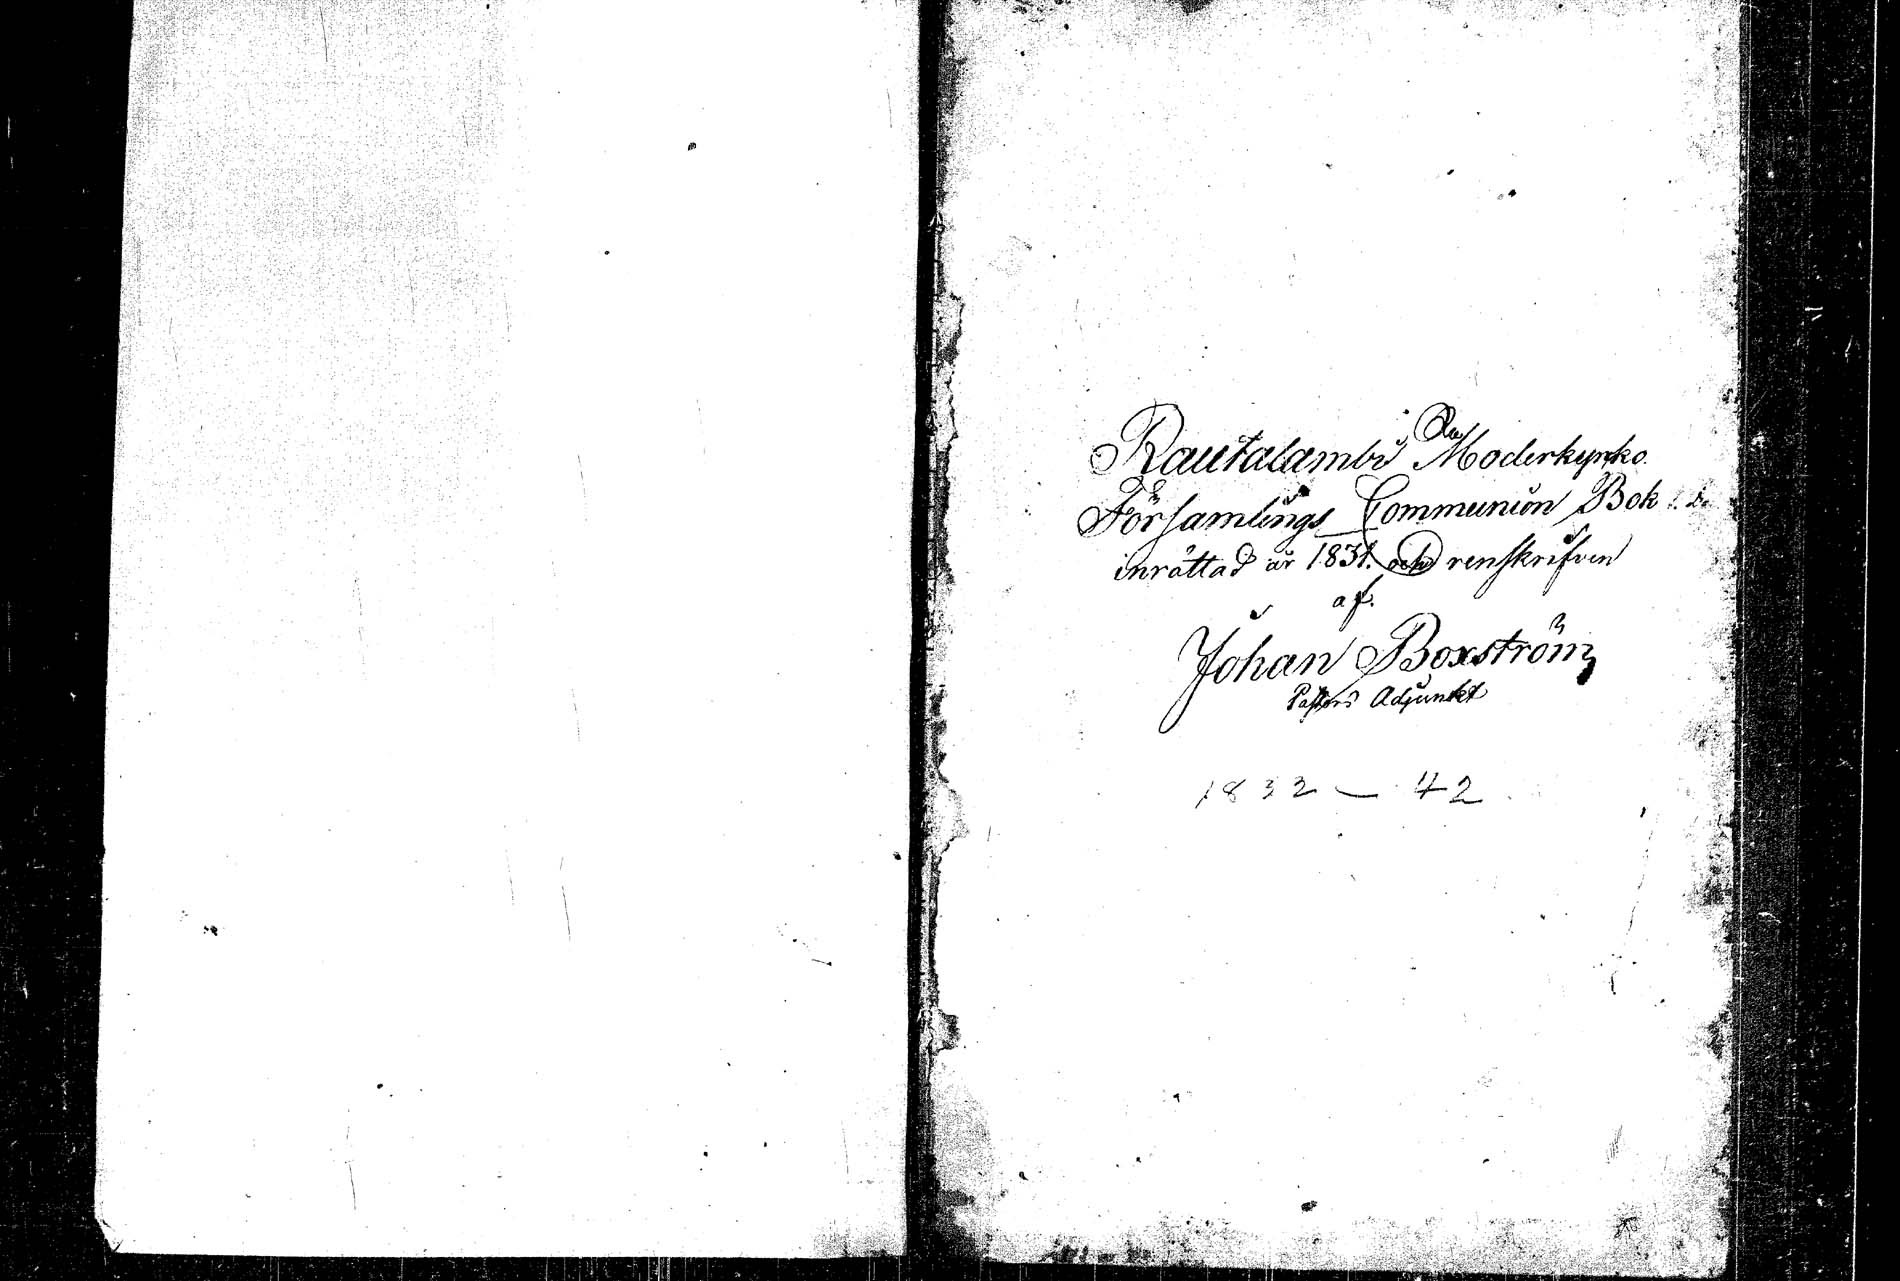 Rautalambi Moderkyrko
Församlings Communion Bok
inrättad år 1831. och renskrifven
af.
Johan Boxström
Pastors Adjunkt
1832 — 42